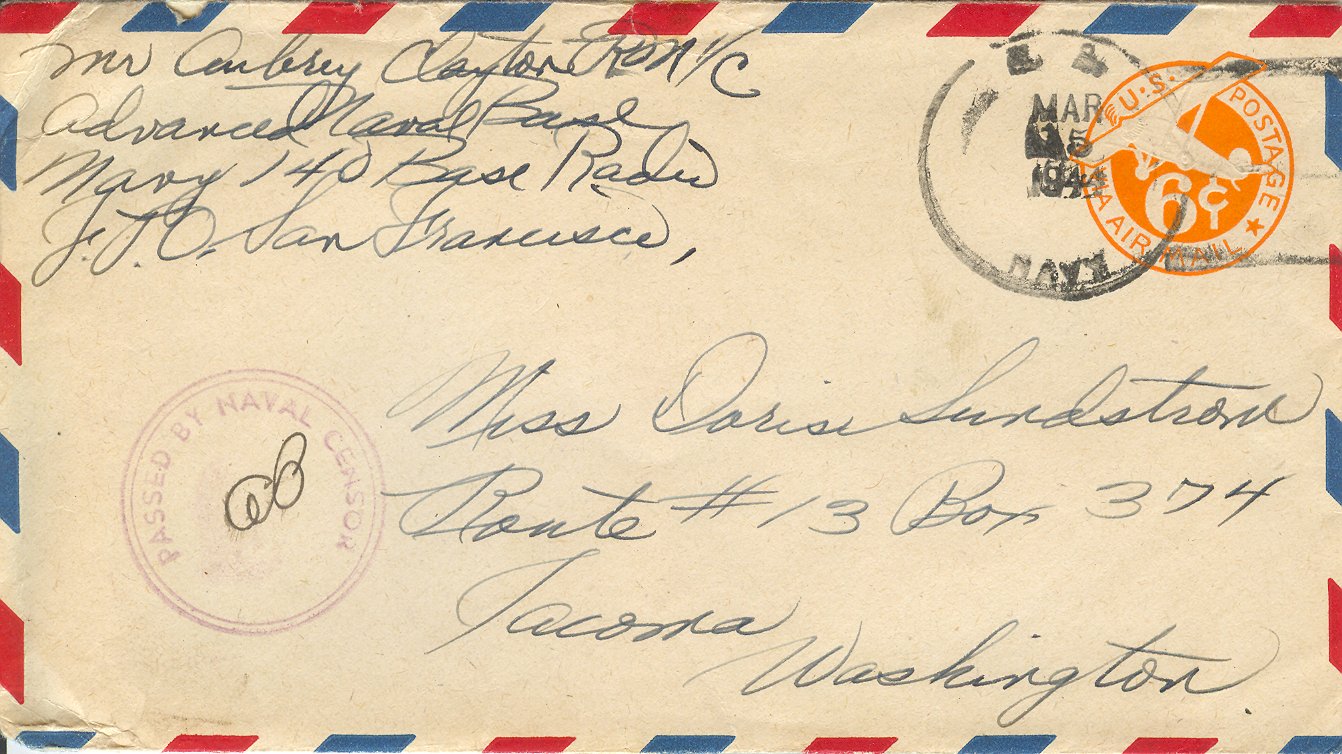 Mr Aubrey Clayton RM 1/C
Advanced Naval Base
Navy 140 Base Radio
F.P.O. San Francisco,
MAR
15
1944
NAVY
U.S. POSTAGE
VIA AIR MAIL
6¢
PASSED BY NAVAL CENSOR
Miss Doris Sundstrom
Route # 13 Box 374
Tacoma
Washington.